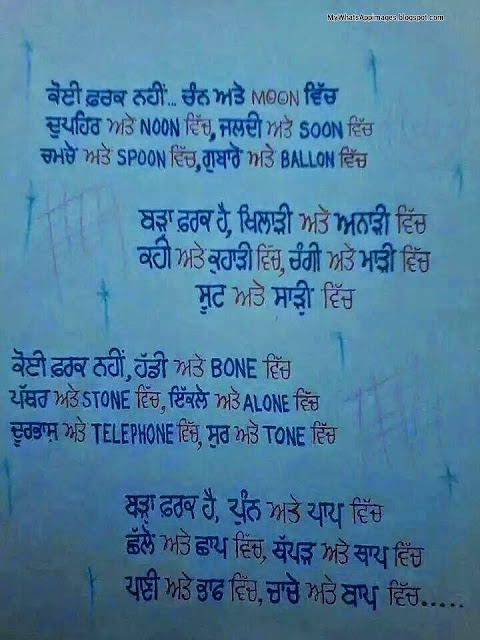 MyWhatsAppimages.blogspot.com
ਕੋਈ ਫ਼ਰਕ ਨਹੀਂ... ਚੰਨ ਅਤੇ MOON ਵਿੱਚ
ਦੁਪਹਿਰ ਅਤੇ NOON ਵਿੱਚ, ਜਲਦੀ ਅਤੇ SOON ਵਿੱਚ
ਚਮਚੇ ਅਤੇ SPOON ਵਿੱਚ, ਗੁਬਾਰੇ ਅਤੇ BALLON ਵਿੱਚ
ਬੜਾ ਫ਼ਰਕ ਹੈ, ਖਿਲਾੜੀ ਅਤੇ ਅਨਾੜੀ ਵਿੱਚ
ਕਹੀ ਅਤੇ ਕੁਹਾੜੀ ਵਿੱਚ, ਚੰਗੀ ਅਤੇ ਮਾੜੀ ਵਿੱਚ
ਸੂਟ ਅਤੇ ਸਾੜੀ ਵਿੱਚ
ਕੋਈ ਫ਼ਰਕ ਨਹੀਂ, ਹੱਡੀ ਅਤੇ BONE ਵਿੱਚ
ਪੱਥਰ ਅਤੇ STONE ਵਿੱਚ, ਇੱਕਲੇ ਅਤੇ ALONE ਵਿੱਚ
ਦੂਰਭਾਸ਼ ਅਤੇ TELEPHONE ਵਿੱਚ, ਸੁਰ ਅਤੇ TONE ਵਿੱਚ
ਬੜਾ ਫ਼ਰਕ ਹੈ, ਪੁੰਨ ਅਤੇ ਪਾਪ ਵਿੱਚ
ਛੱਲੇ ਅਤੇ ਛਾਪ ਵਿੱਚ, ਥੱਪੜ ਅਤੇ ਥਾਪ ਵਿੱਚ
ਪਾਣੀ ਅਤੇ ਭਾਫ ਵਿੱਚ, ਚਾਚੇ ਅਤੇ ਬਾਪ ਵਿੱਚ.....